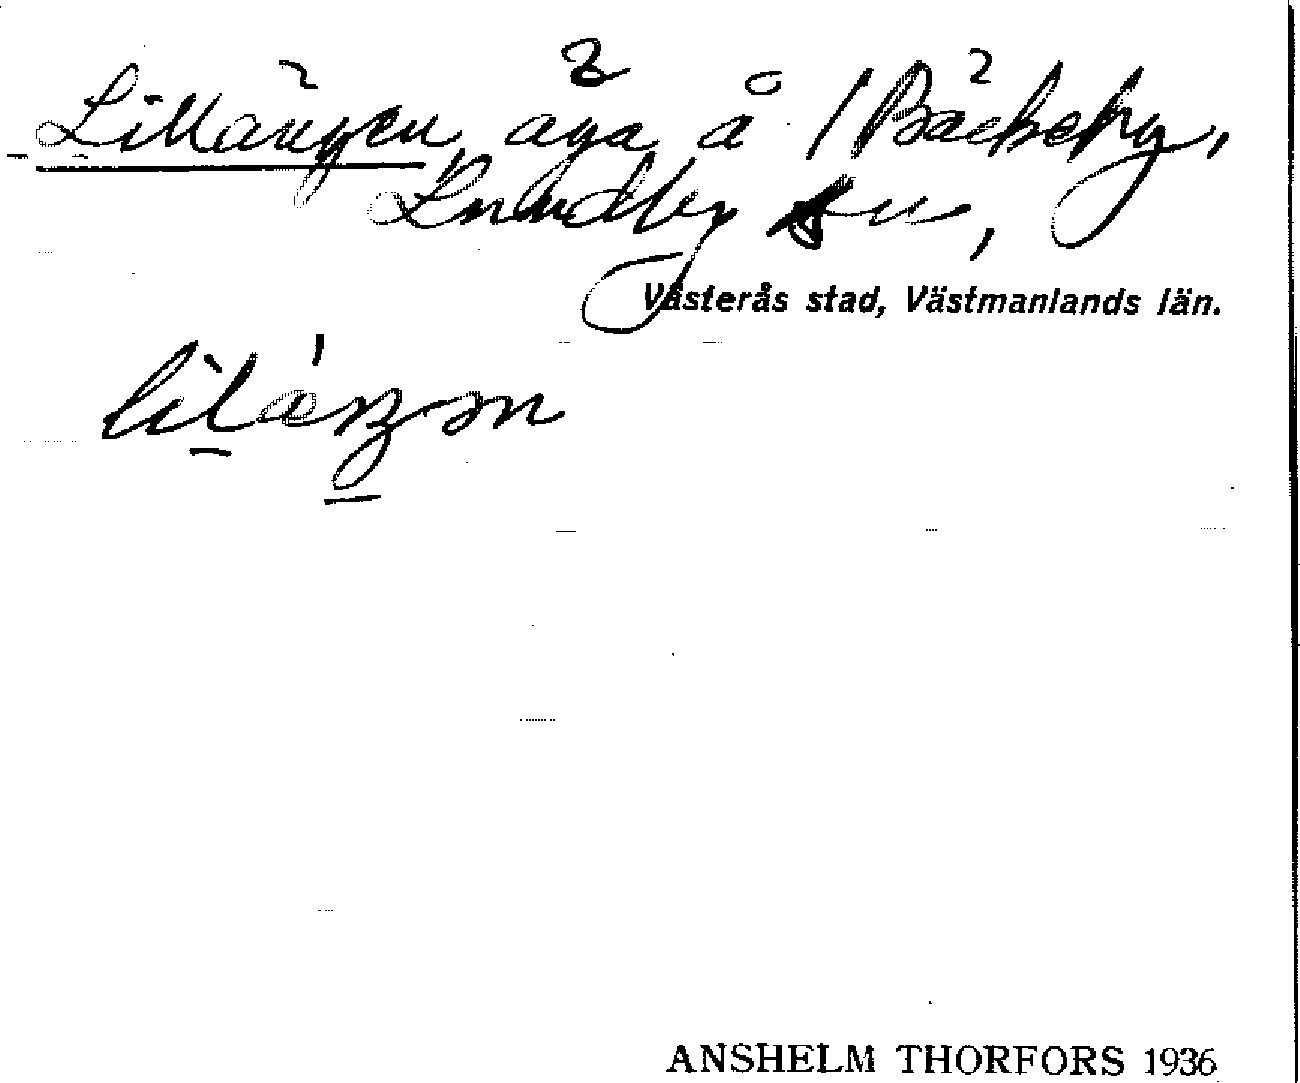 Lillängen, äga å Bäckeby,
Lundby sn,
Västerås stad, Västmanlands län.
ANSHELM THORFORS 1936